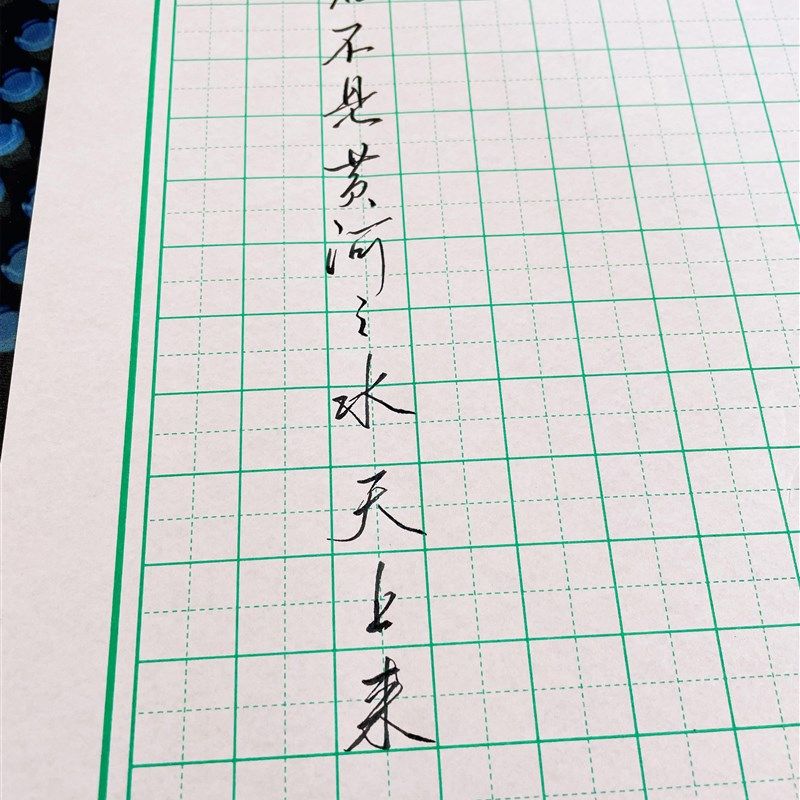 不见黄河之水天上来